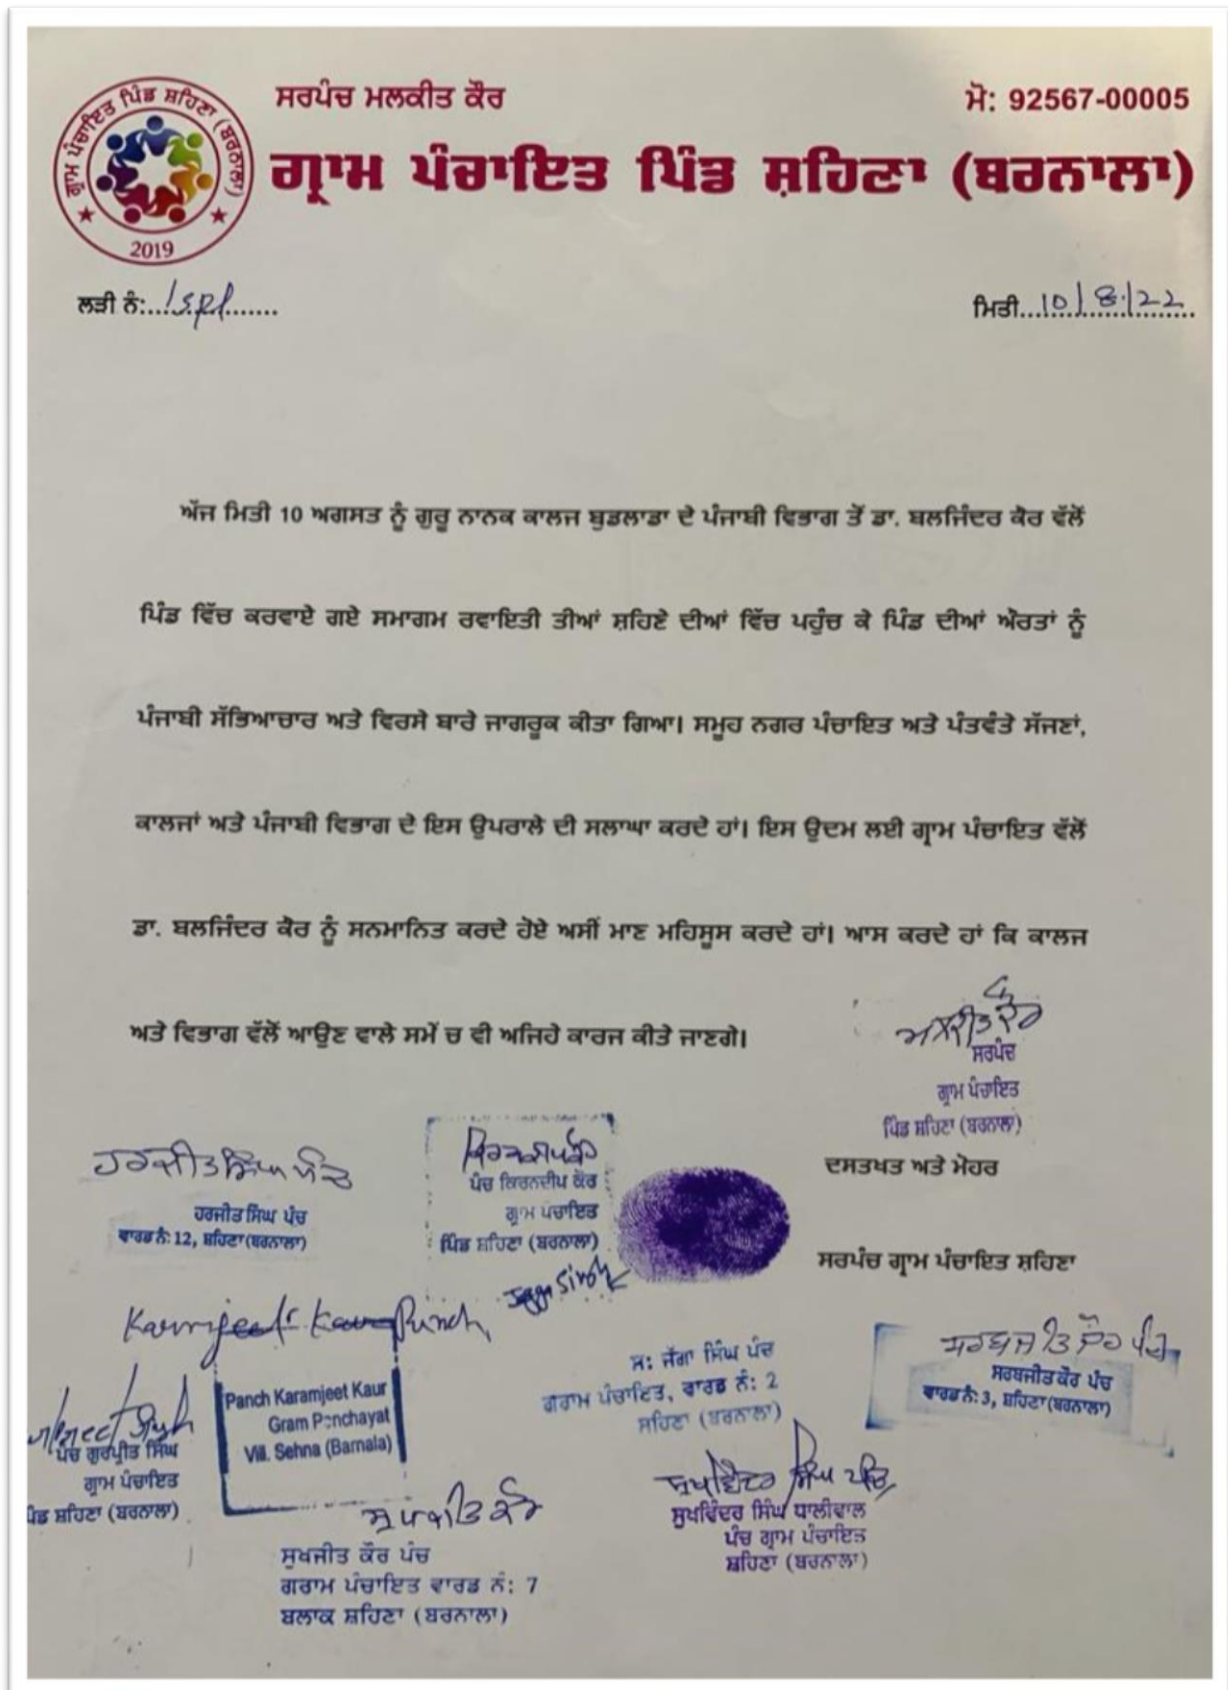 ਗ੍ਰਾਮ ਪੰਚਾਇਤ ਪਿੰਡ ਸ਼ਹਿਣਾ (ਬਰਨਾਲਾ)
2019
ਸਰਪੰਚ ਮਲਕੀਤ ਕੌਰ
ਮੋ: 92567-00005
ਗ੍ਰਾਮ ਪੰਚਾਇਤ ਪਿੰਡ ਸ਼ਹਿਣਾ (ਬਰਨਾਲਾ)
ਲੜੀ ਨੰ:.../spl.......
ਮਿਤੀ...10/8/22
ਅੱਜ ਮਿਤੀ 10 ਅਗਸਤ ਨੂੰ ਗੁਰੂ ਨਾਨਕ ਕਾਲਜ ਬੁਢਲਾਡਾ ਦੇ ਪੰਜਾਬੀ ਵਿਭਾਗ ਤੋਂ ਡਾ. ਬਲਜਿੰਦਰ ਕੌਰ ਵੱਲੋਂ
ਪਿੰਡ ਵਿੱਚ ਕਰਵਾਏ ਗਏ ਸਮਾਗਮ ਰਵਾਇਤੀ ਤੀਆਂ ਸ਼ਹਿਣੇ ਦੀਆਂ ਵਿੱਚ ਪਹੁੰਚ ਕੇ ਪਿੰਡ ਦੀਆਂ ਔਰਤਾਂ ਨੂੰ
ਪੰਜਾਬੀ ਸੱਭਿਆਚਾਰ ਅਤੇ ਵਿਰਸੇ ਬਾਰੇ ਜਾਗਰੂਕ ਕੀਤਾ ਗਿਆ। ਸਮੂਹ ਨਗਰ ਪੰਚਾਇਤ ਅਤੇ ਪੰਤਵੰਤੇ ਸੱਜਣਾਂ,
ਕਾਲਜਾਂ ਅਤੇ ਪੰਜਾਬੀ ਵਿਭਾਗ ਦੇ ਇਸ ਉਪਰਾਲੇ ਦੀ ਸਲਾਘਾ ਕਰਦੇ ਹਾਂ। ਇਸ ਉਦਮ ਲਈ ਗ੍ਰਾਮ ਪੰਚਾਇਤ ਵੱਲੋਂ
ਡਾ. ਬਲਜਿੰਦਰ ਕੌਰ ਨੂੰ ਸਨਮਾਨਿਤ ਕਰਦੇ ਹੋਏ ਅਸੀਂ ਮਾਣ ਮਹਿਸੂਸ ਕਰਦੇ ਹਾਂ। ਆਸ ਕਰਦੇ ਹਾਂ ਕਿ ਕਾਲਜ
ਅਤੇ ਵਿਭਾਗ ਵੱਲੋਂ ਆਉਣ ਵਾਲੇ ਸਮੇਂ ਚ ਵੀ ਅਜਿਹੇ ਕਾਰਜ ਕੀਤੇ ਜਾਣਗੇ।
ਸਰਪੰਚ
ਗ੍ਰਾਮ ਪੰਚਾਇਤ
ਪਿੰਡ ਸ਼ਹਿਣਾ (ਬਰਨਾਲਾ)
ਦਸਤਖਤ ਅਤੇ ਮੋਹਰ
ਸਰਪੰਚ ਗ੍ਰਾਮ ਪੰਚਾਇਤ ਸ਼ਹਿਣਾ
ਹਰਜੀਤ ਸਿੰਘ ਪੰਚ
ਹਰਜੀਤ ਸਿੰਘ ਪੰਚ
ਵਾਰਡ ਨੰ: 12, ਸ਼ਹਿਣਾ (ਬਰਨਾਲਾ)
ਪੰਚ ਕਿਰਨਦੀਪ ਕੌਰ
ਗ੍ਰਾਮ ਪੰਚਾਇਤ
ਪਿੰਡ ਸ਼ਹਿਣਾ (ਬਰਨਾਲਾ)
Jagga Singh
Karmjeet Kaur Punch
Panch Karamjeet Kaur
Gram Panchayat
Vill. Sehna (Barnala)
ਸ: ਜੱਗਾ ਸਿੰਘ ਪੰਚ
ਗਰਾਮ ਪੰਚਾਇਤ, ਵਾਰਡ ਨੰ: 2
ਸਹਿਣਾ (ਬਰਨਾਲਾ)
ਸਰਬਜੀਤ ਕੌਰ ਪੰਚ
ਸਰਬਜੀਤ ਕੌਰ ਪੰਚ
ਵਾਰਡ ਨੰ: 3, ਸ਼ਹਿਣਾ (ਬਰਨਾਲਾ)
ਪੰਚ ਗੁਰਪ੍ਰੀਤ ਸਿੰਘ
ਗ੍ਰਾਮ ਪੰਚਾਇਤ
ਪਿੰਡ ਸ਼ਹਿਣਾ (ਬਰਨਾਲਾ)
ਸੁਖਵਿੰਦਰ ਸਿੰਘ ਪੰਚ
ਸੁਖਵਿੰਦਰ ਸਿੰਘ ਧਾਲੀਵਾਲ
ਪੰਚ ਗ੍ਰਾਮ ਪੰਚਾਇਤ
ਸ਼ਹਿਣਾ (ਬਰਨਾਲਾ)
ਸੁਖਜੀਤ ਕੌਰ ਪੰਚ
ਗਰਾਮ ਪੰਚਾਇਤ ਵਾਰਡ ਨੰ: 7
ਬਲਾਕ ਸ਼ਹਿਣਾ (ਬਰਨਾਲਾ)